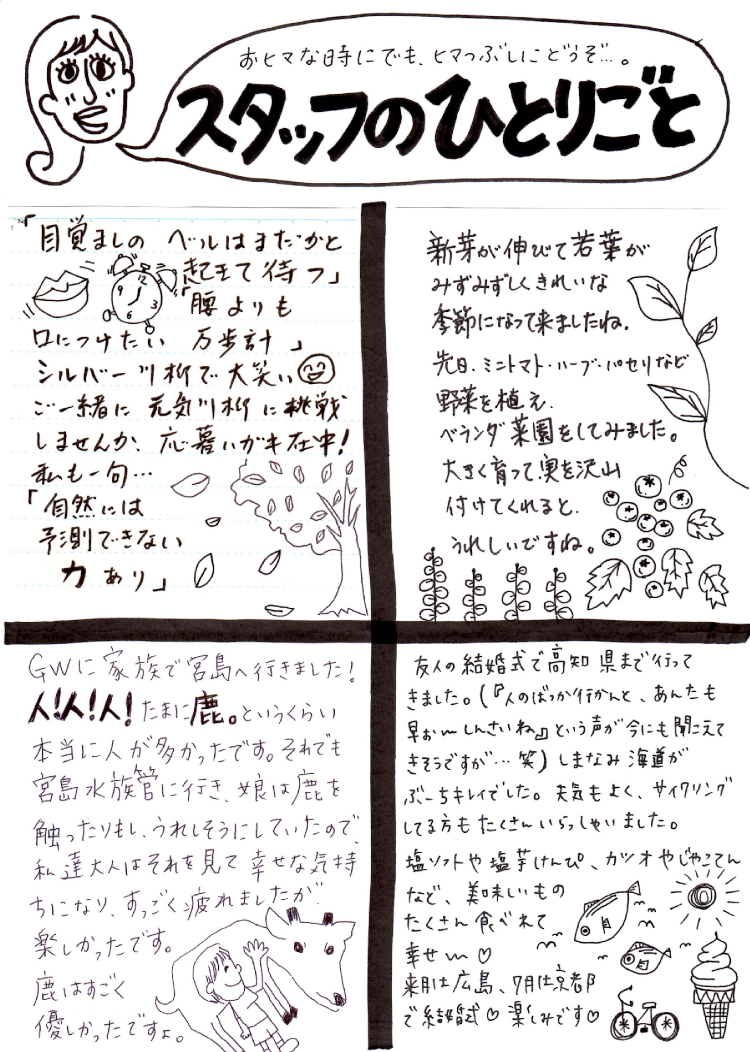 おヒマな時にでも、ヒマつぶしにどうぞ…。
スタッフのひとりごと
「目覚ましの ベルはまだかと
起きて待つ」
「腰よりも
口につけたい 万歩計」
シルバー川柳で大笑い
ご一緒に 元気川柳に挑戦
しませんか、応募いがキ在中!
私も一句…
「自然には
予測できない
力あり」
新芽が伸びて若葉が
みずみずしくきれいな
季節になって来ましたね。
先日、ミニトマト・ハーブ・パセリなど
野菜を植え、
ベランダ菜園をしてみました。
大きく育って、実を沢山
付けてくれると、
うれしいですね。
GWに家族で宮島へ行きました!
人!人!人!たまに鹿。というくらい
本当に人が多かったです。それでも
宮島水族管に行き、娘は鹿を
触ったりもし、うれしそうにしていたので、
私達大人はそれを見て幸せな気持
ちになり、すっごく疲れましたが
楽しかったです。
鹿はすごく
優しかったですよ。
友人の結婚式で高知県まで行って
きました。(『人のばっか行かんと、あんたも
早ぉ〜しんさいね』という声が今にも聞こえて
きそうですが…笑)しまなみ海道が
ぶーちキレイでした。天気もよく、サイクリング
してる方もたくさんいらっしゃいました。
塩ソフトや塩芋けんぴ、カツオやじゃこてん
など、美味しいもの
たくさん食べれて
幸せ〜♡
来月は広島、7月は京都
で結婚式♡楽しみです♡